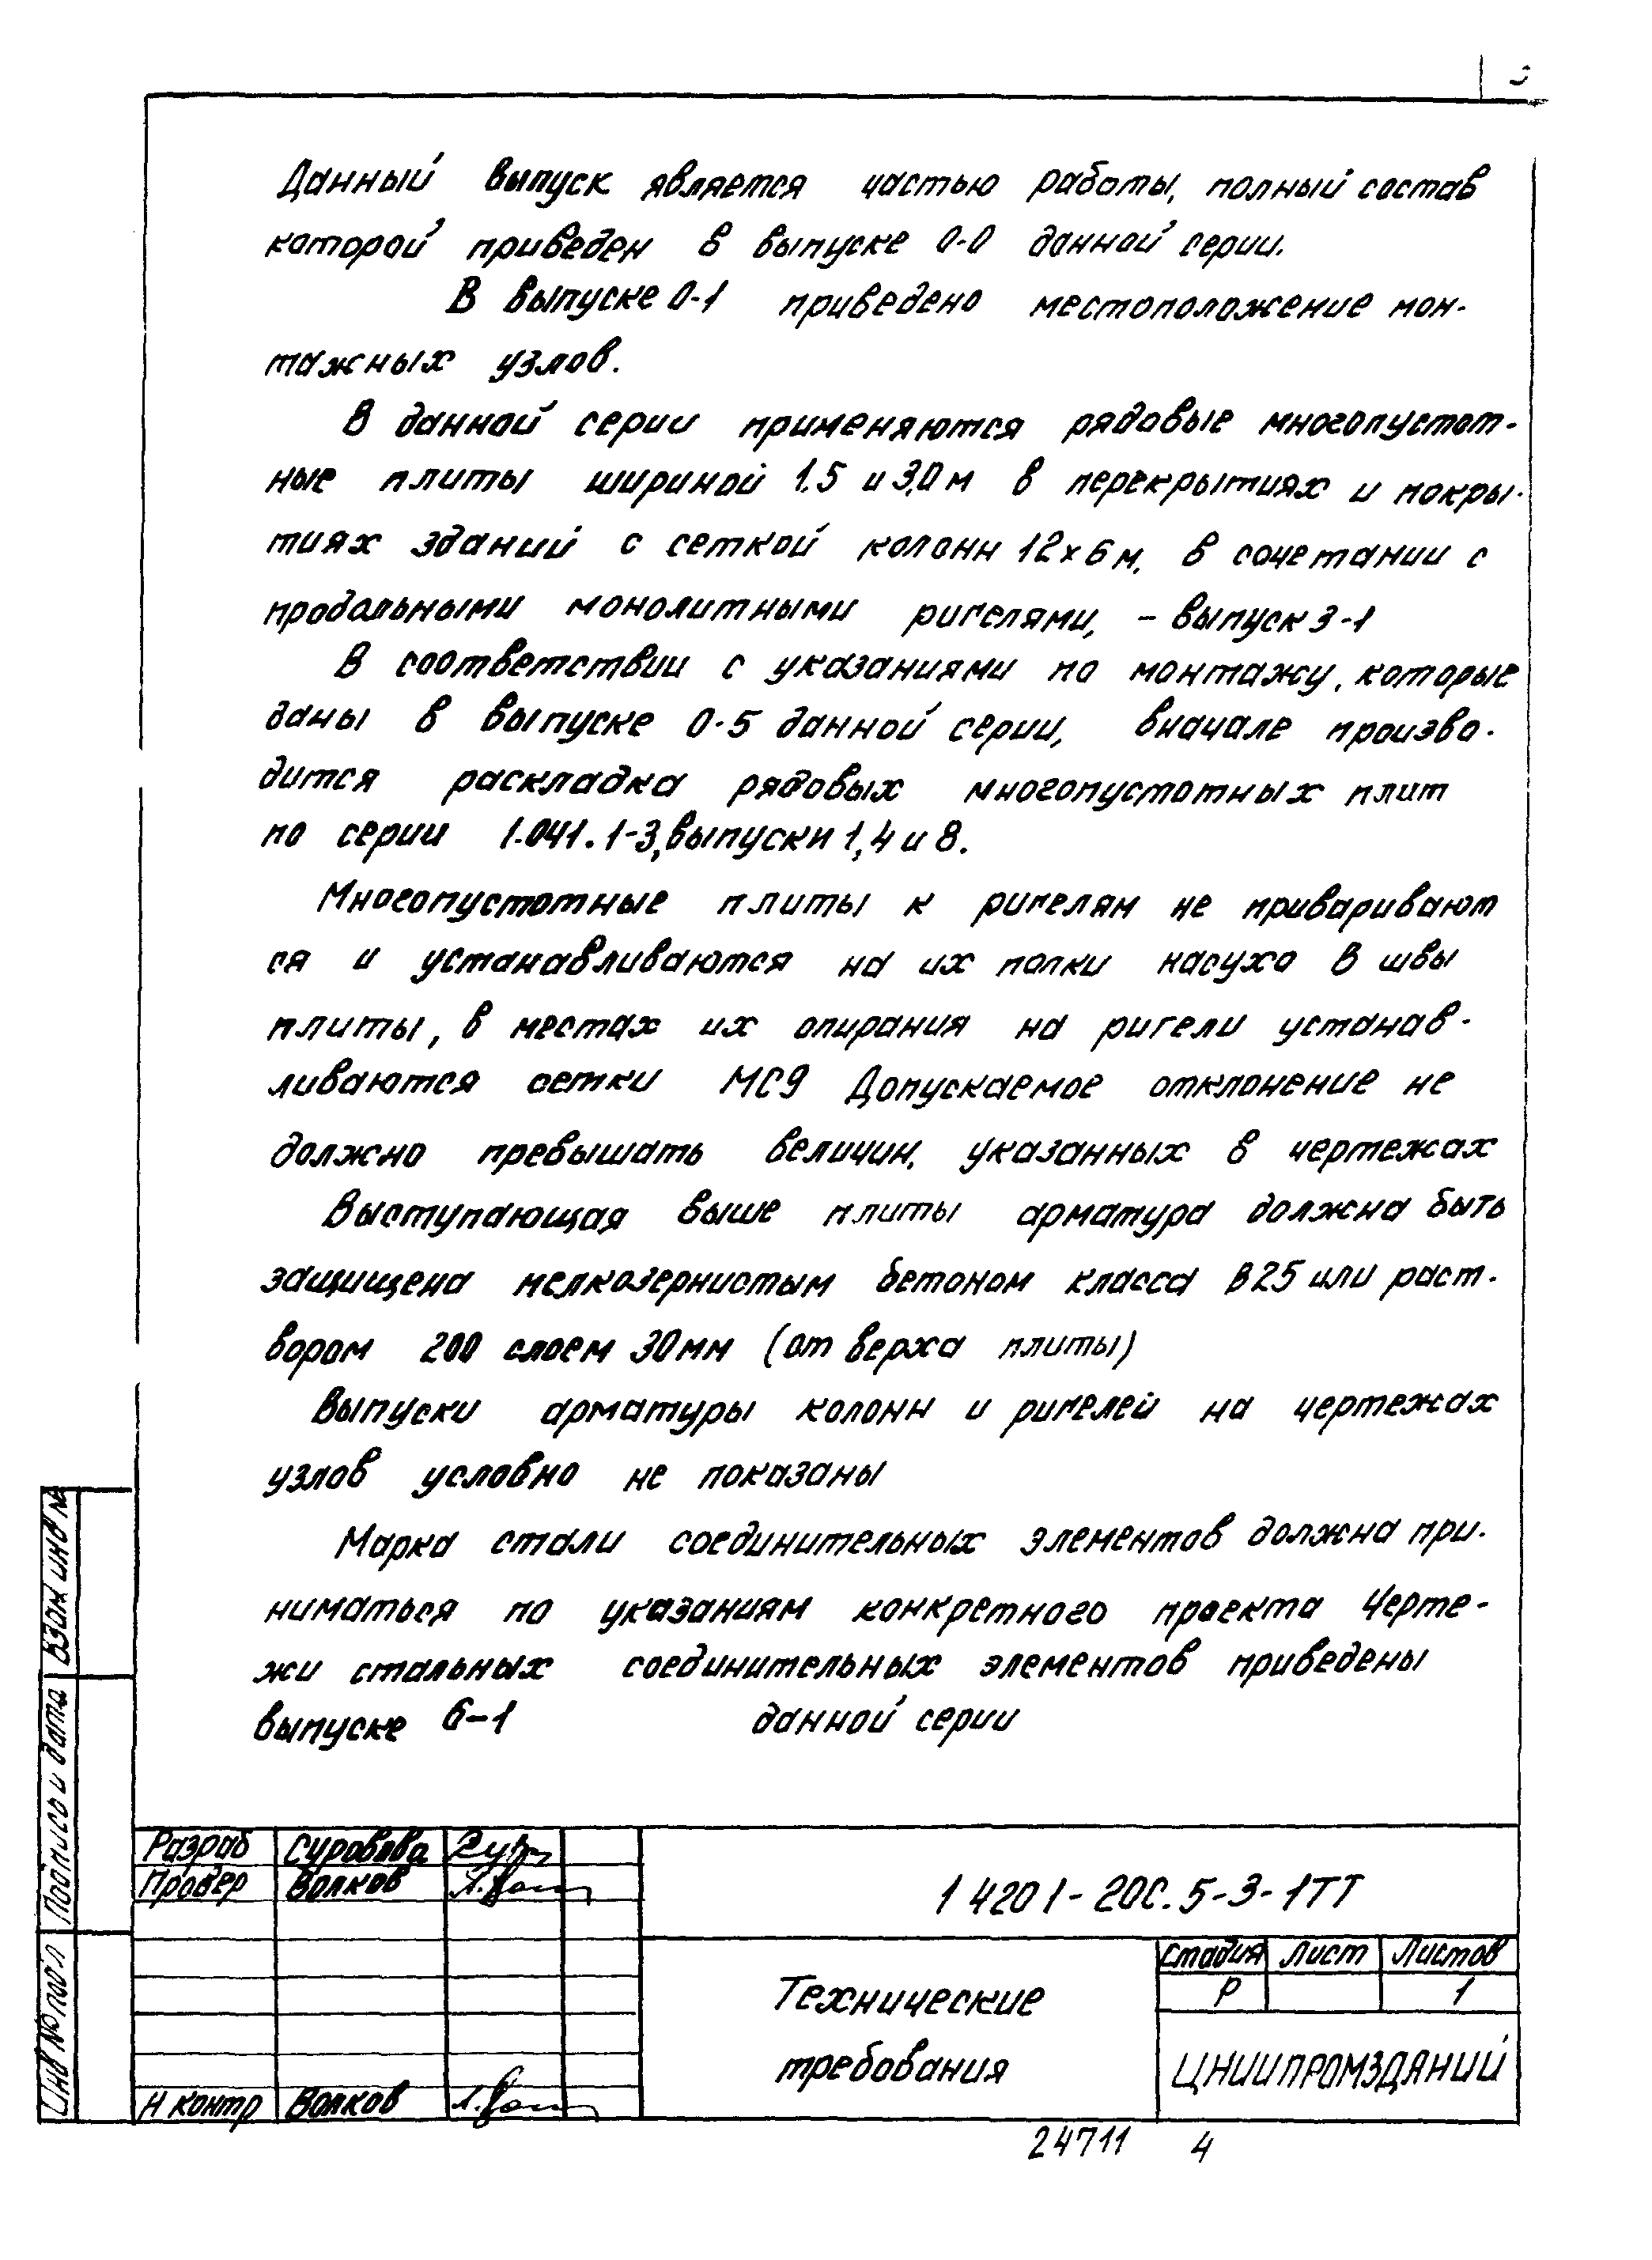 Данный выпуск является частью работы, полный состав
которой приведен в выпуске 0-0 данной серии.
В выпуске 0-1 приведено местоположение мон-
тажных узлов.
В данной серии применяются рядовые многопустот-
ные плиты шириной 1.5 и 3,0 м в перекрытиях и покры-
тиях зданий с сеткой колонн 12×6 м, в сочетании с
продольными монолитными ригелями, - выпуск 3-1
В соответствии с указаниями по монтажу, которые
даны в выпуске 0-5 данной серии, вначале произво-
дится раскладка рядовых многопустотных плит
по серии 1.041.1-3, выпуски 1,4 и 8.
Многопустотные плиты к ригелям не приваривают
ся и устанавливаются на их полки насухо В швы
плиты, в местах их опирания на ригели устанав-
ливаются сетки МС9 Допускаемое отклонение не
должно превышать величин, указанных в чертежах
Выступающая выше плиты арматура должна быть
защищена мелкозернистым бетоном класса В25 или раст-
вором 200 слоем 30 мм (от верха плиты)
Выпуски арматуры колонн и ригелей на чертежах
узлов условно не показаны
Марка стали соединительных элементов должна при-
ниматься по указаниям конкретного проекта Черте-
жи стальных соединительных элементов приведены
выпуске 6-1 данной серии
Взам инв №
Подпись и дата
Инв № подл
Разраб Суровова
Провер Волков
Н контр Волков
1 420 1-20С.5-3-1ТТ
Технические
требования
Стадия Лист Листов
Р 1
ЦНИИПРОМЗДАНИЙ
24711 4